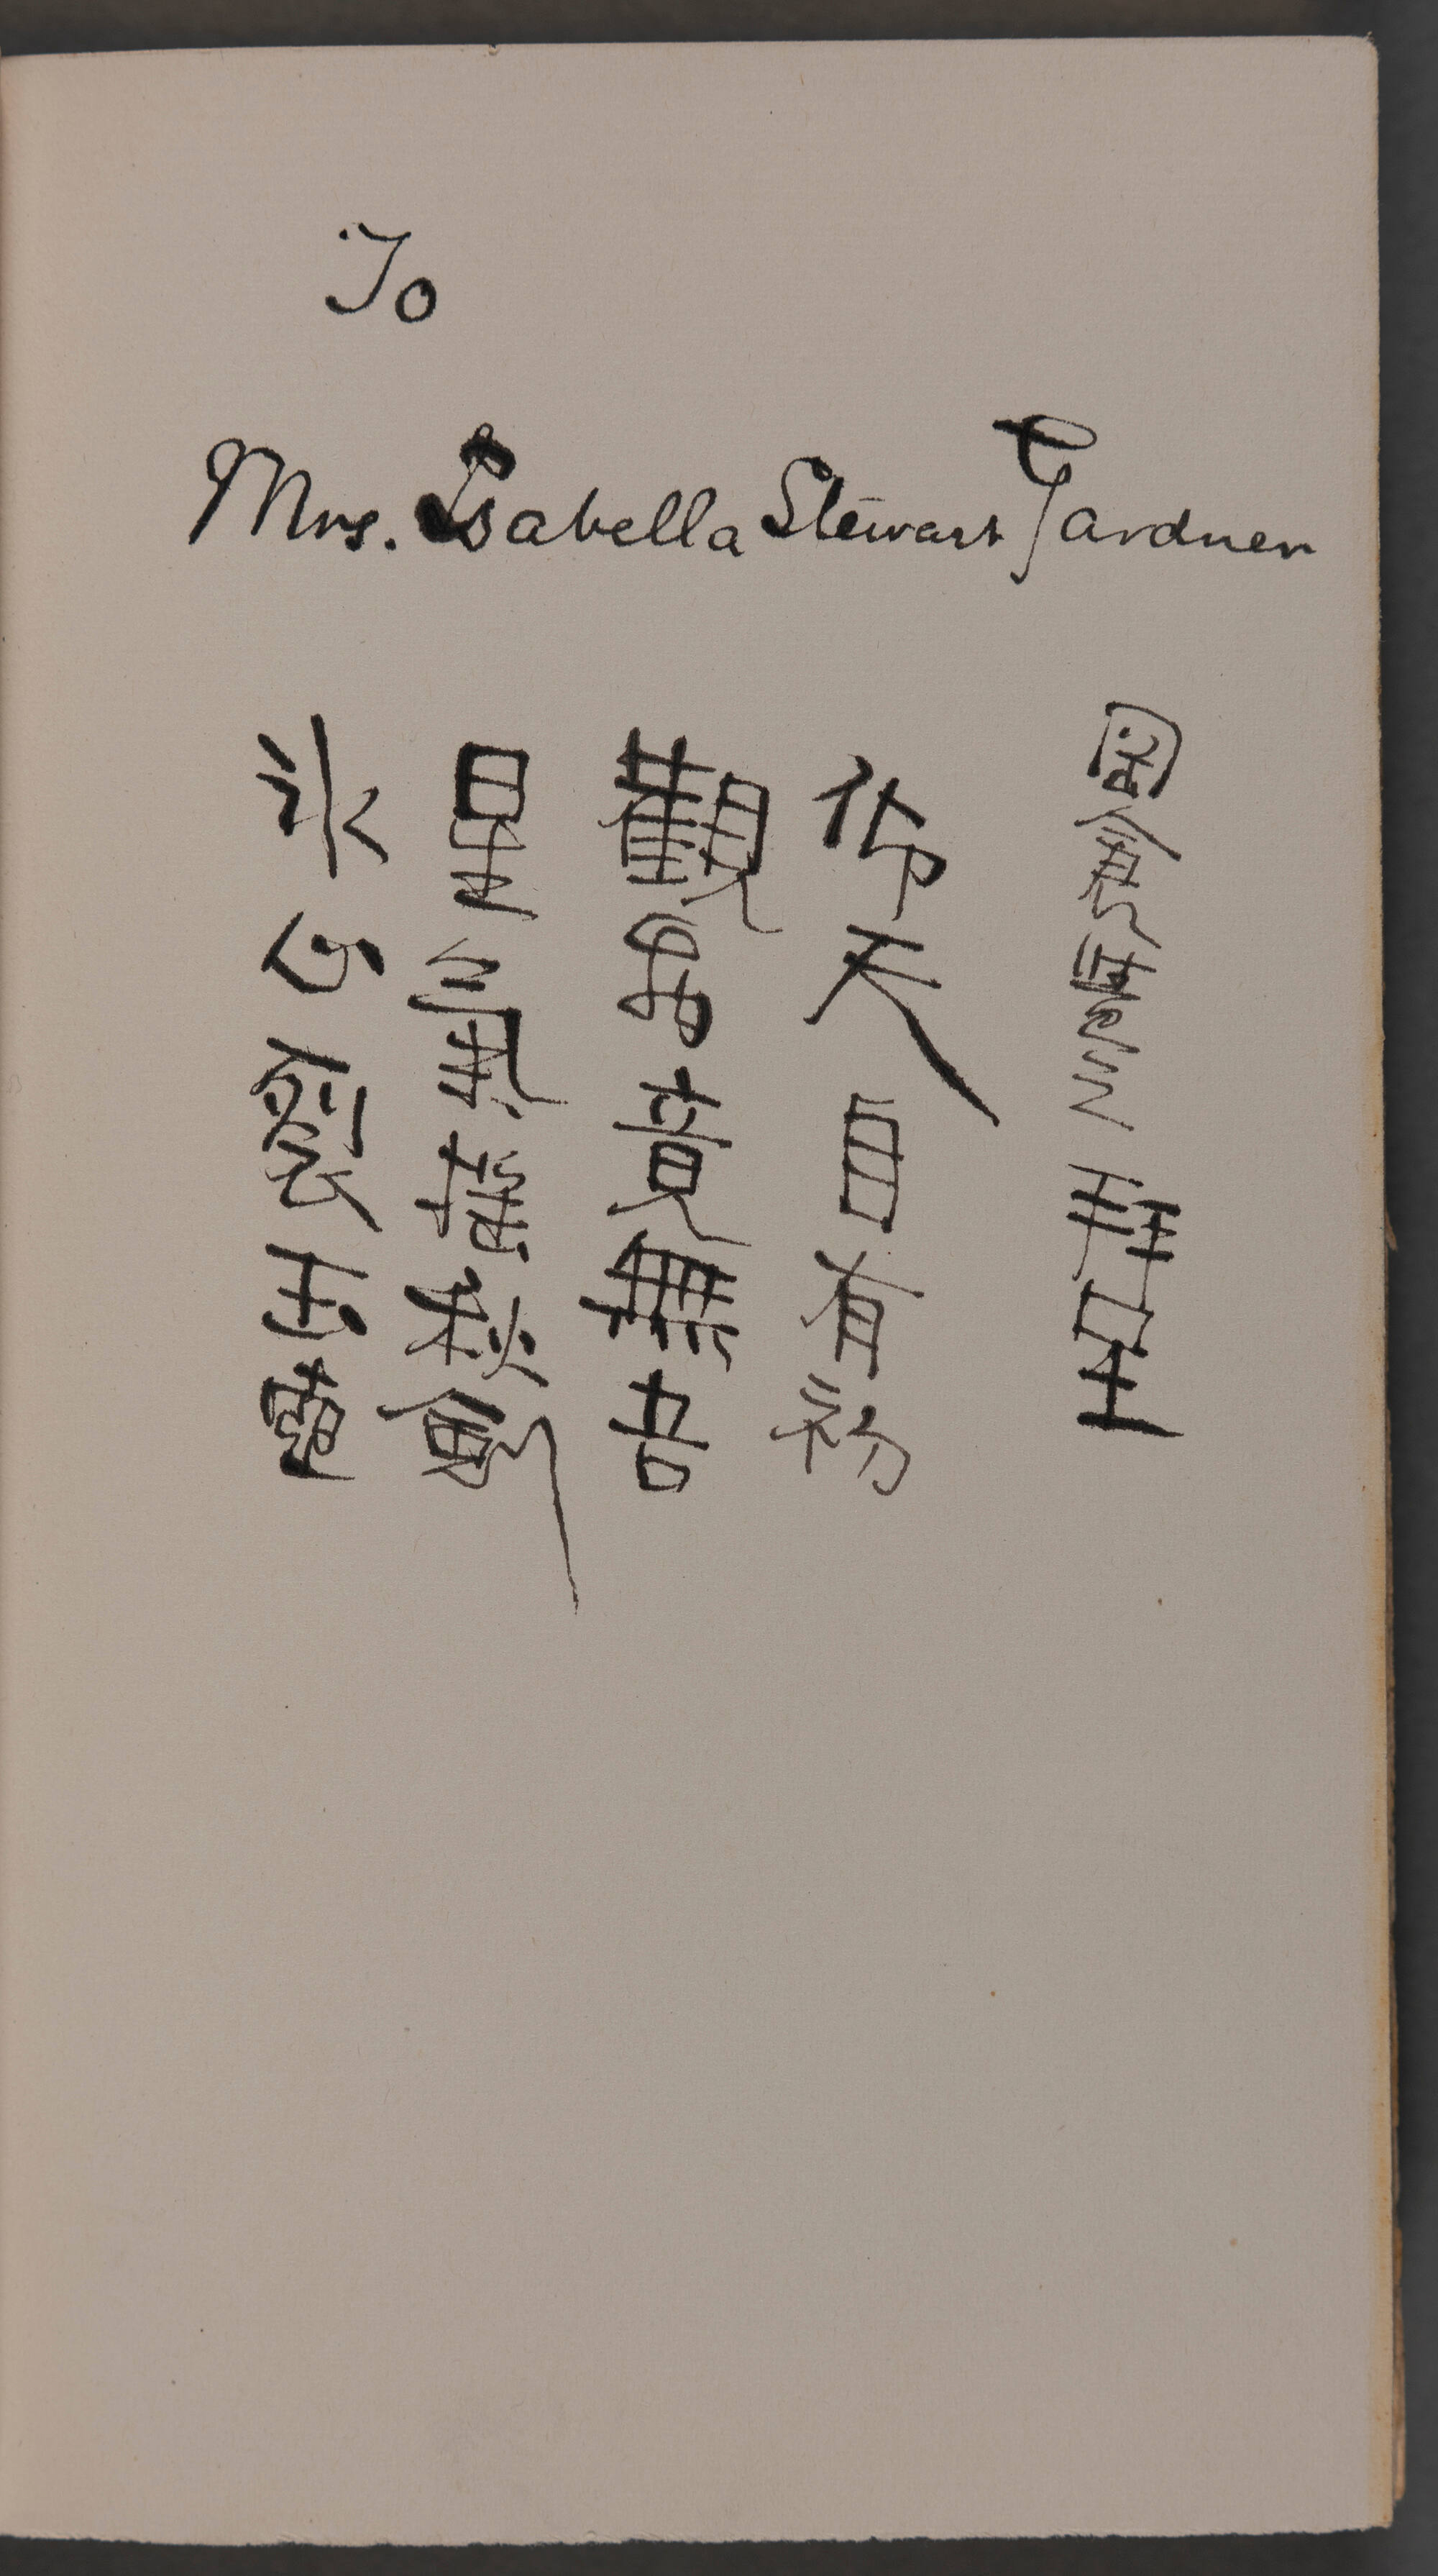 To
Mrs. Isabella Stewart Gardner
岡倉覺三 拜呈
仰天自有初
觀物竟無吾
星氣搖秋劍
氷心裂玉壺